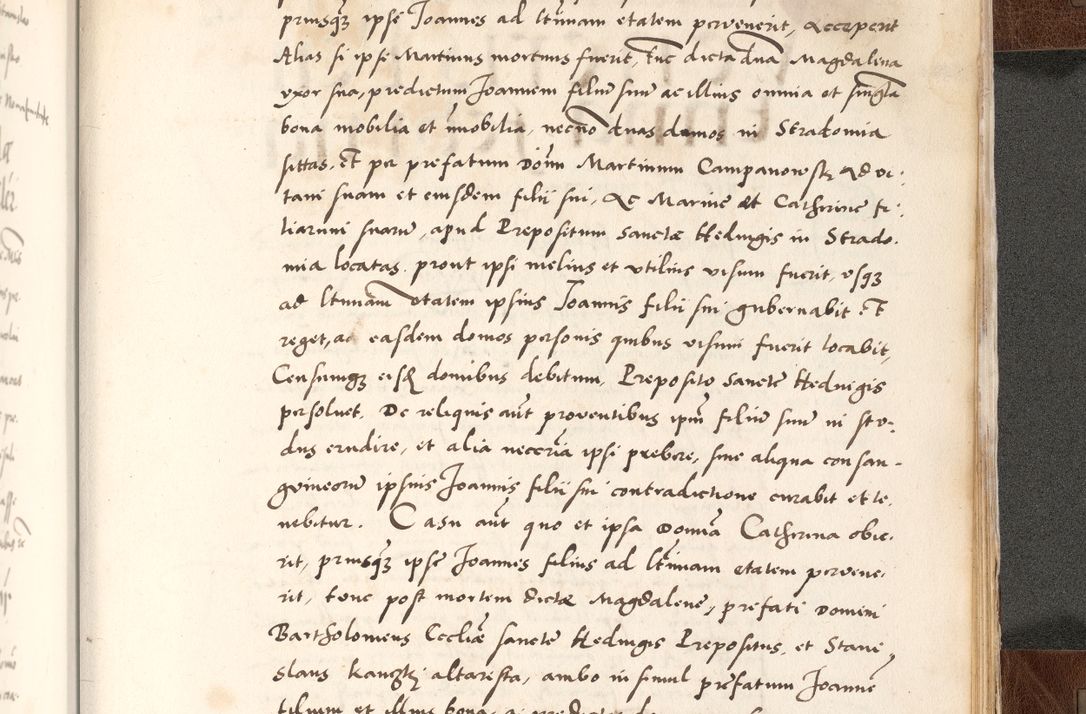 priusq3 ipse Joannes ad ltimam etatem pervenerit, Accepent
Alias si ipse Martinus mortuus fuerit, tuc dicta dna Magdalena
uxor sua, predictum Joannem filiu suu ac illius omnia et singla
bona mobilia et imobilia, necno duas domos in Stradomia
sittas, Et per prefatum Donu Martinum Campanowsky ad vi:
tam suam et eiusdem filii sui, Ac Marine et Catherine fi:
liarum suaru, apud Prepositum Sanctæ Hedvigis in Strado:
mia locatas, prout ipsi melius et utilius visum fuerit, usq3
ad ltimam etatem ipsius Joannis filii sui gubernabit Et
reget, ac easdem domos personis quibus visum fuerit locabit,
Censumq3 eisd domibus debitum, Preposito Sancte Hedvigis
persoluet, De reliquis aut proventibus ipm filiu suu in stu:
dus erudire, et alia neccria ipsi prebere, sine aliqua consan-
guineoru ipsius Joannis filii sui contradictione curabit et te:
nebitur. Casu aut quo et ipsa Domna Catherina obie:
rit, priusq3 ipse Joannes filius ad ltimam etatem pervene:
rit, tunc post mortem dictæ Magdalene, prefati Domini
Bartholomeus Eccliæ sancte Hedvigis Prepositus, et Stani
slaus altaresta, ambo in simul prefatum Joanne
filium et illius bona